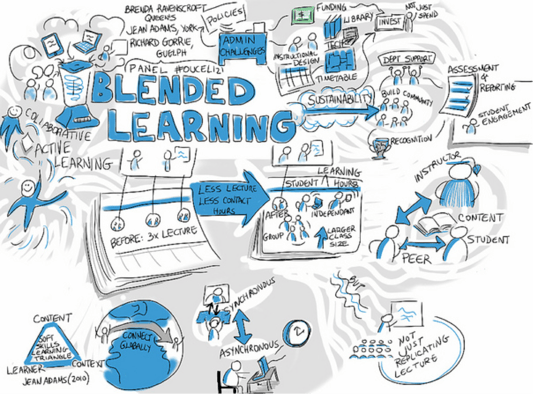 BRENDA RAVENSCROFT
QUEENS
JEAN ADAMS, YORK
RICHARD GORRIE,
GUELPH
PANEL #OUCEL121
POLICIES
ADMIN
CHALLENGES
FUNDING
LIBRARY
TECH
INSTRUCTIONAL
DESIGN
TIMETABLE
INVEST
NOT JUST
SPEND
DEPT SUPPORT
BUILD COMMUNITY
RECOGNITION
SUSTAINABILITY
ASSESSMENT
&
REPORTING
STUDENT
ENGAGEMENT
BLENDED
LEARNING
COLLABORATIVE
ACTIVE
LEARNING
BEFORE: 3X LECTURE
LESS LECTURE
LESS CONTACT
HOURS
LEARNING
STUDENT HOURS
AFTER
INDEPENDANT
GROUP
LARGER
CLASS
SIZE
INSTRUCTOR
CONTENT
STUDENT
PEER
CONTENT
SOFT
SKILLS
LEARNING
TRIANGLE
LEARNER
CONTEXT
JEAN ADAMS (2010)
CONNECT
GLOBALLY
SYNCHRONOUS
ASYNCHRONOUS
NOT
JUST
REPLICATING
LECTURE